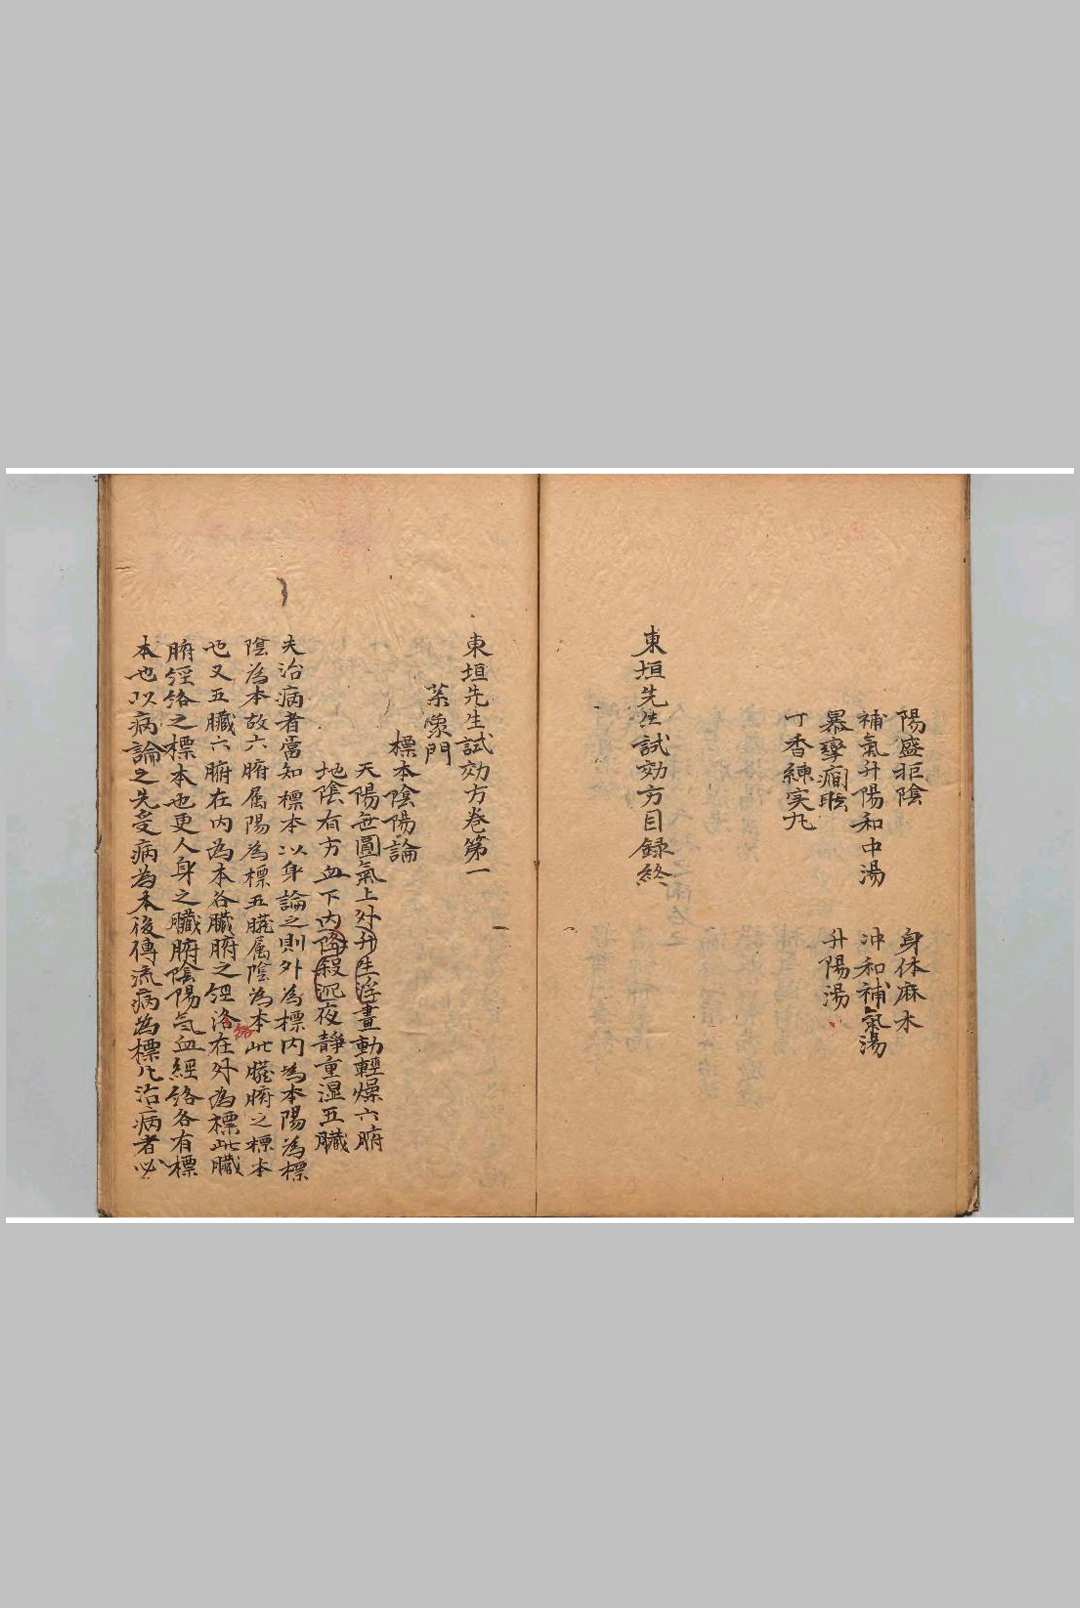 陽盛拒陰　身体麻木
補氣升陽和中湯　冲和補氣湯
暴攣癇眩　升陽湯
丁香練实丸
東垣先生試効方目録終
東垣先生試効方卷第一
藥象門
標本陰陽論
天陽無圓氣上外升生浮晝動輕燥六腑
地陰有方血下内降殺沉夜靜重湿五臟
夫治病者當知標本以身論之則外為標内為本陽為標
陰為本故六腑属陽為標五臓属陰為本此臓腑之標本
也又五臟六腑在内為本各臟腑之經洛在外為標此臟
絡
腑經絡之標本也更人身之臟腑陰陽氣血經絡各有標
本也以病論之先受病為本後傳流病為標凡治病者必